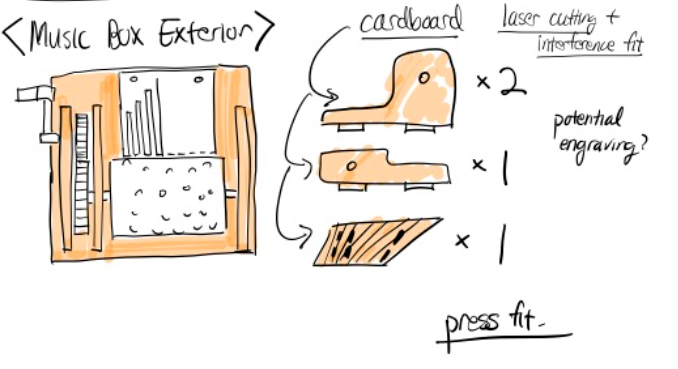 <Music Box Exterior>
cardboard
laser cutting +
interference fit
×2
potential
engraving?
×1
×1
press fit.